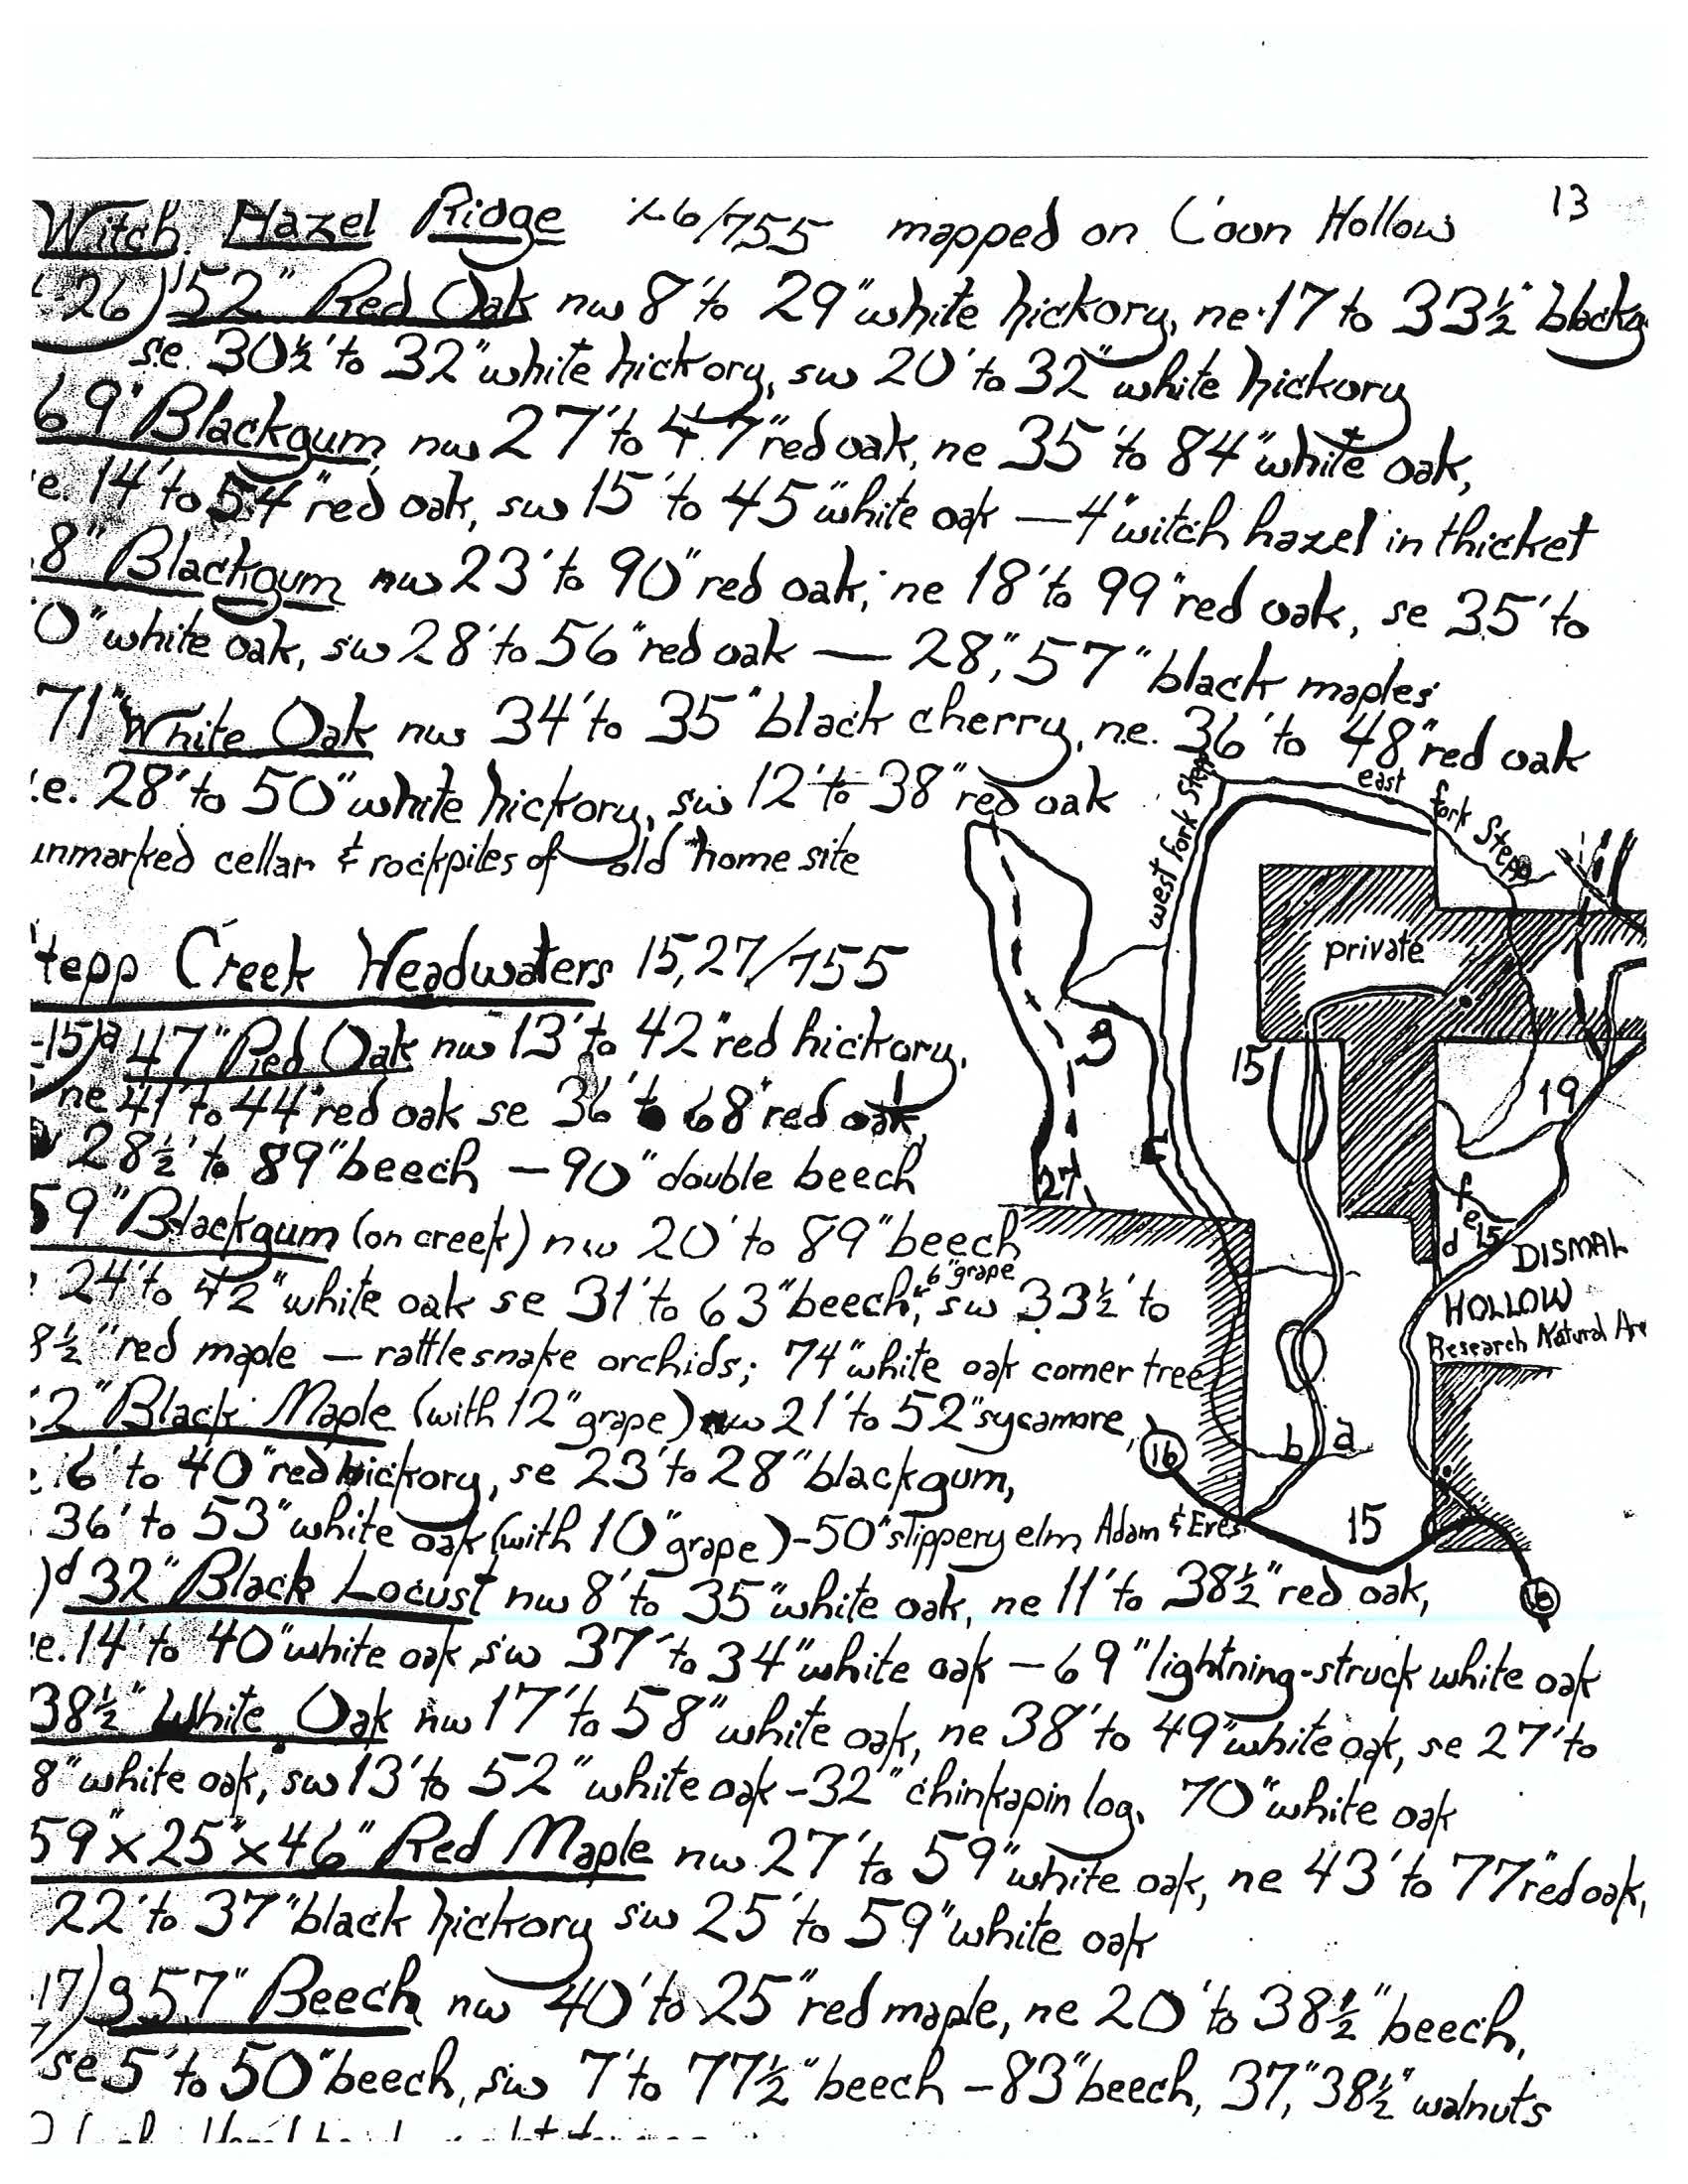 13
Witch Hazel Ridge 26/755 mapped on Coon Hollow
-26) 52" Red Oak nw 8' to 29" white hickory, ne 17 to 33½" blackg
s.e. 30½' to 32" white hickory, sw 20' to 32" white hickory
69" Blackgum nw 27' to 47" red oak, ne 35' to 84" white oak,
e. 14' to 54" red oak, sw 15' to 45" white oak — 4" witch hazel in thicket
8" Blackgum nw 23' to 90" red oak, ne 18' to 99" red oak, se 35' to
0" white oak, sw 28' to 56" red oak — 28", 57" black maples
71" White Oak nw 34' to 35" black cherry, n.e. 36' to 48" red oak
.e. 28' to 50" white hickory, sw 12' to 38" red oak
unmarked cellar & rockpiles of old home site
tepp Creek Headwaters 15,27/755
-15)a 47" Red Oak nw 13' to 42" red hickory,
ne 41' to 44" red oak se 36' to 68" red oak,
28½' to 89" beech – 90" double beech
59" Blackgum (on creek) nw 20' to 89" beech
24' to 42" white oak se 31' to 63" beech, 6" grape sw 33½' to
8½" red maple – rattlesnake orchids; 74" white oak corner tree
2" Black Maple (with 12" grape) nw 21' to 52" sycamore,
e. 6' to 40" red hickory, se 23' to 28" blackgum,
36' to 53" white oak (with 10" grape) – 50" slippery elm Adam & Eves
)d 32" Black Locust nw 8' to 35" white oak, ne 11' to 38½" red oak,
e. 14' to 40" white oak, sw 37' to 34" white oak – 69" lightning-struck white oak
38½" White Oak nw 17' to 58" white oak, ne 38' to 49" white oak, se 27' to
8" white oak, sw 13' to 52" white oak – 32" chinkapin log, 70" white oak
59" x 25" x 46" Red Maple nw 27' to 59" white oak, ne 43' to 77" red oak,
22' to 37" black hickory sw 25' to 59" white oak
17) g 57" Beech nw 40' to 25" red maple, ne 20' to 38½" beech,
se 5' to 50" beech, sw 7' to 77½" beech – 83" beech, 37", 38½" walnuts
west fork Stepp
east fork Stepp
private
3
15
19
c
27
f
e
15
d
DISMAL
HOLLOW
Research Natural Are
16
b
a
15
16